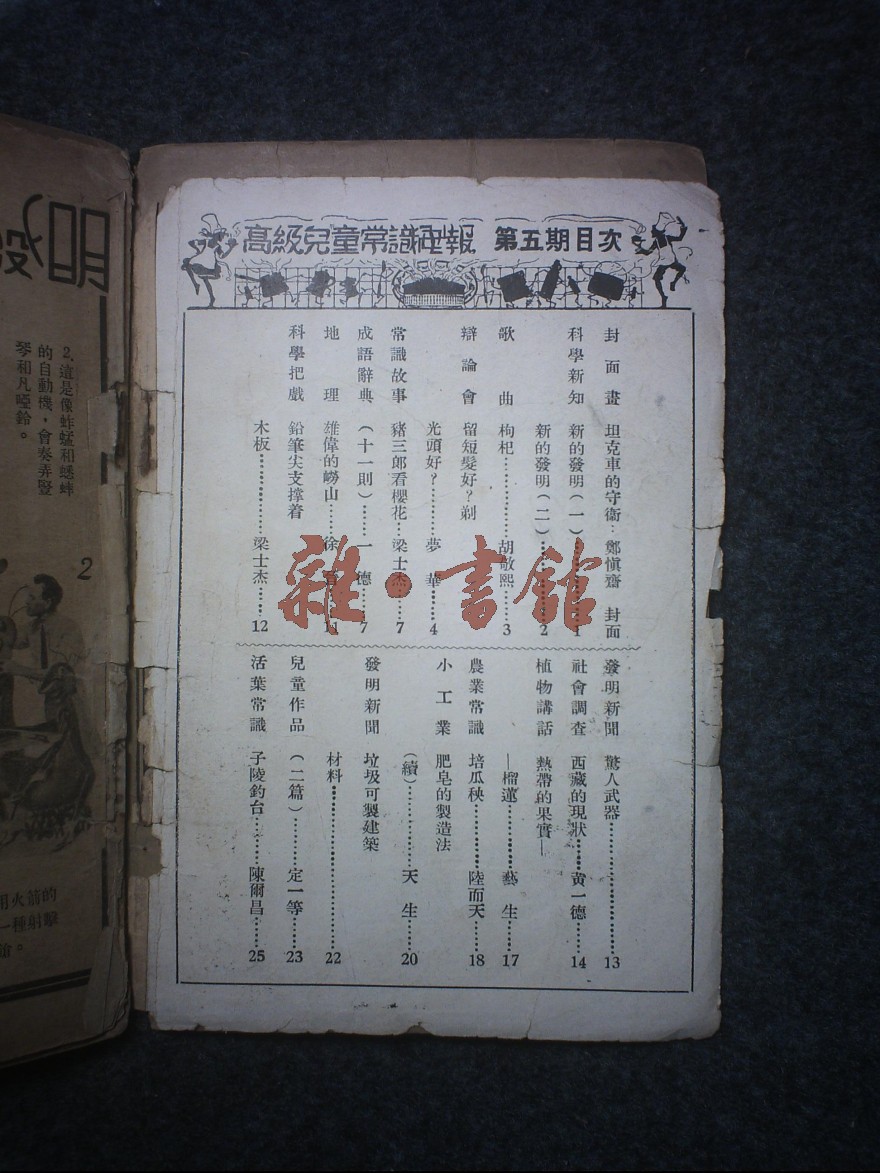 高級兒童常識畫報 第五期目次
封面畫 坦克車的守衞‥鄭愼齋 封面
科學新知 新的發明（一）…………1
新的發明（二）…………2
歌曲 枸杞…………胡敬熙……3
辯論會 留短髮好？剃
光頭好？……夢華……4
常識故事 豬三郎看櫻花…梁士杰……7
成語辭典 （十一則）……一德……7
地理 雄偉的嶗山……徐……11
科學把戲 鉛筆尖支撐着
木板…………梁士杰……12
發明新聞 驚人武器…………13
社會調查 西藏的現狀……黃一德……14
植物講話 熱帶的果實—
—榴蓮…………藝生……17
農業常識 培瓜秧…………陸而天……18
小工業 肥皂的製造法
（續）…………天生……20
發明新聞 垃圾可製建築
材料…………22
兒童作品 （二篇）……定一等……23
活葉常識 子陵釣台………陳爾昌……25
雜·書館
明
2、這是像蚱蜢和蟋蟀
的自動機，會奏弄豎
琴和凡啞鈴。
2
用火箭的
一種射擊